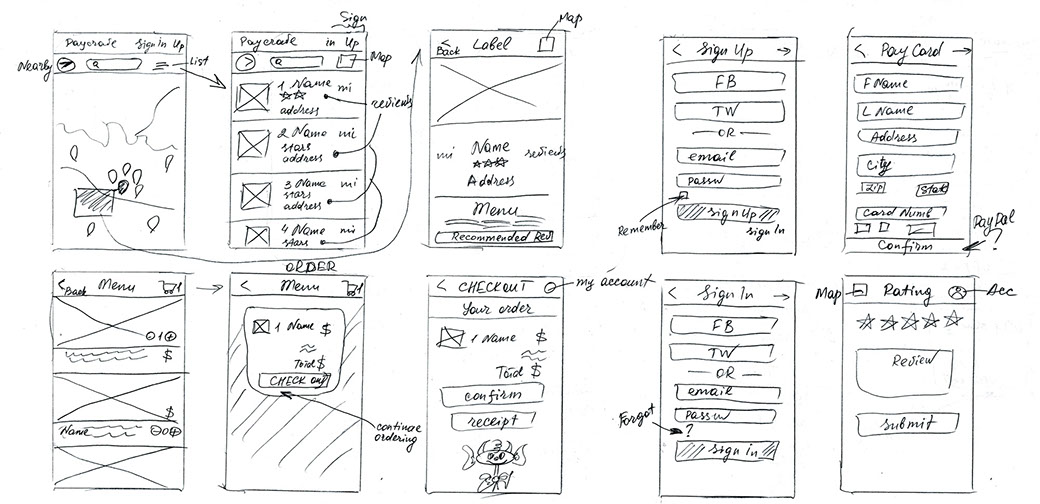 Paycrate Sign Up
Nearby
a
List
Sign
Paycrate in Up
a
Map
1 Name mi
address
reviews
2 Name mi
stars
address
3 Name mi
stars
address
4 Name mi
stars
Map
Back Label
mi Name reviews
Address
Menu
Recommended Rest
< Sign Up
FB
TW
OR
email
Passw
Remember
Sign Up
sign In
< Pay Card
F Name
L Name
Address
City
zip State
Card Numb
Confirm
PayPal
?
< Back Menu 1
⊖1⊕
$
$
Name ⊖0⊕
ORDER
< Menu 1
1 Name $
Total $
CHECK out
continue
ordering
< CHECKOUT
my account
Your order
1 Name $
Total $
confirm
receipt
< Sign In
FB
TW
OR
email
Passw
Forgot ?
Sign In
Map Rating Acc
Review
submit